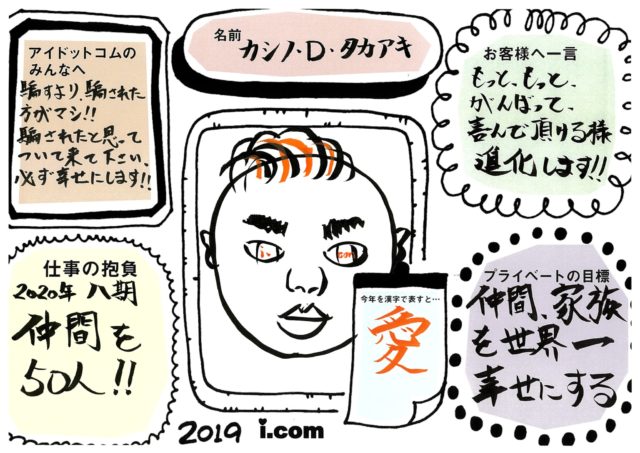 アイドットコムの
みんなへ
騙すより、騙された
方がマシ!!
騙されたと思って
ついて来て下さい、
必ず幸せにします!!
名前
カシノ・D・タカアキ
お客様へ一言
もっと、もっと、
がんばって、
喜んで頂ける様
進化します!!
仕事の抱負
2020年 八期
仲間を
50人!!
i.
com
今年を漢字で表すと…
愛
プライベートの目標
仲間、家族
を世界一
幸せにする
2019 i.com